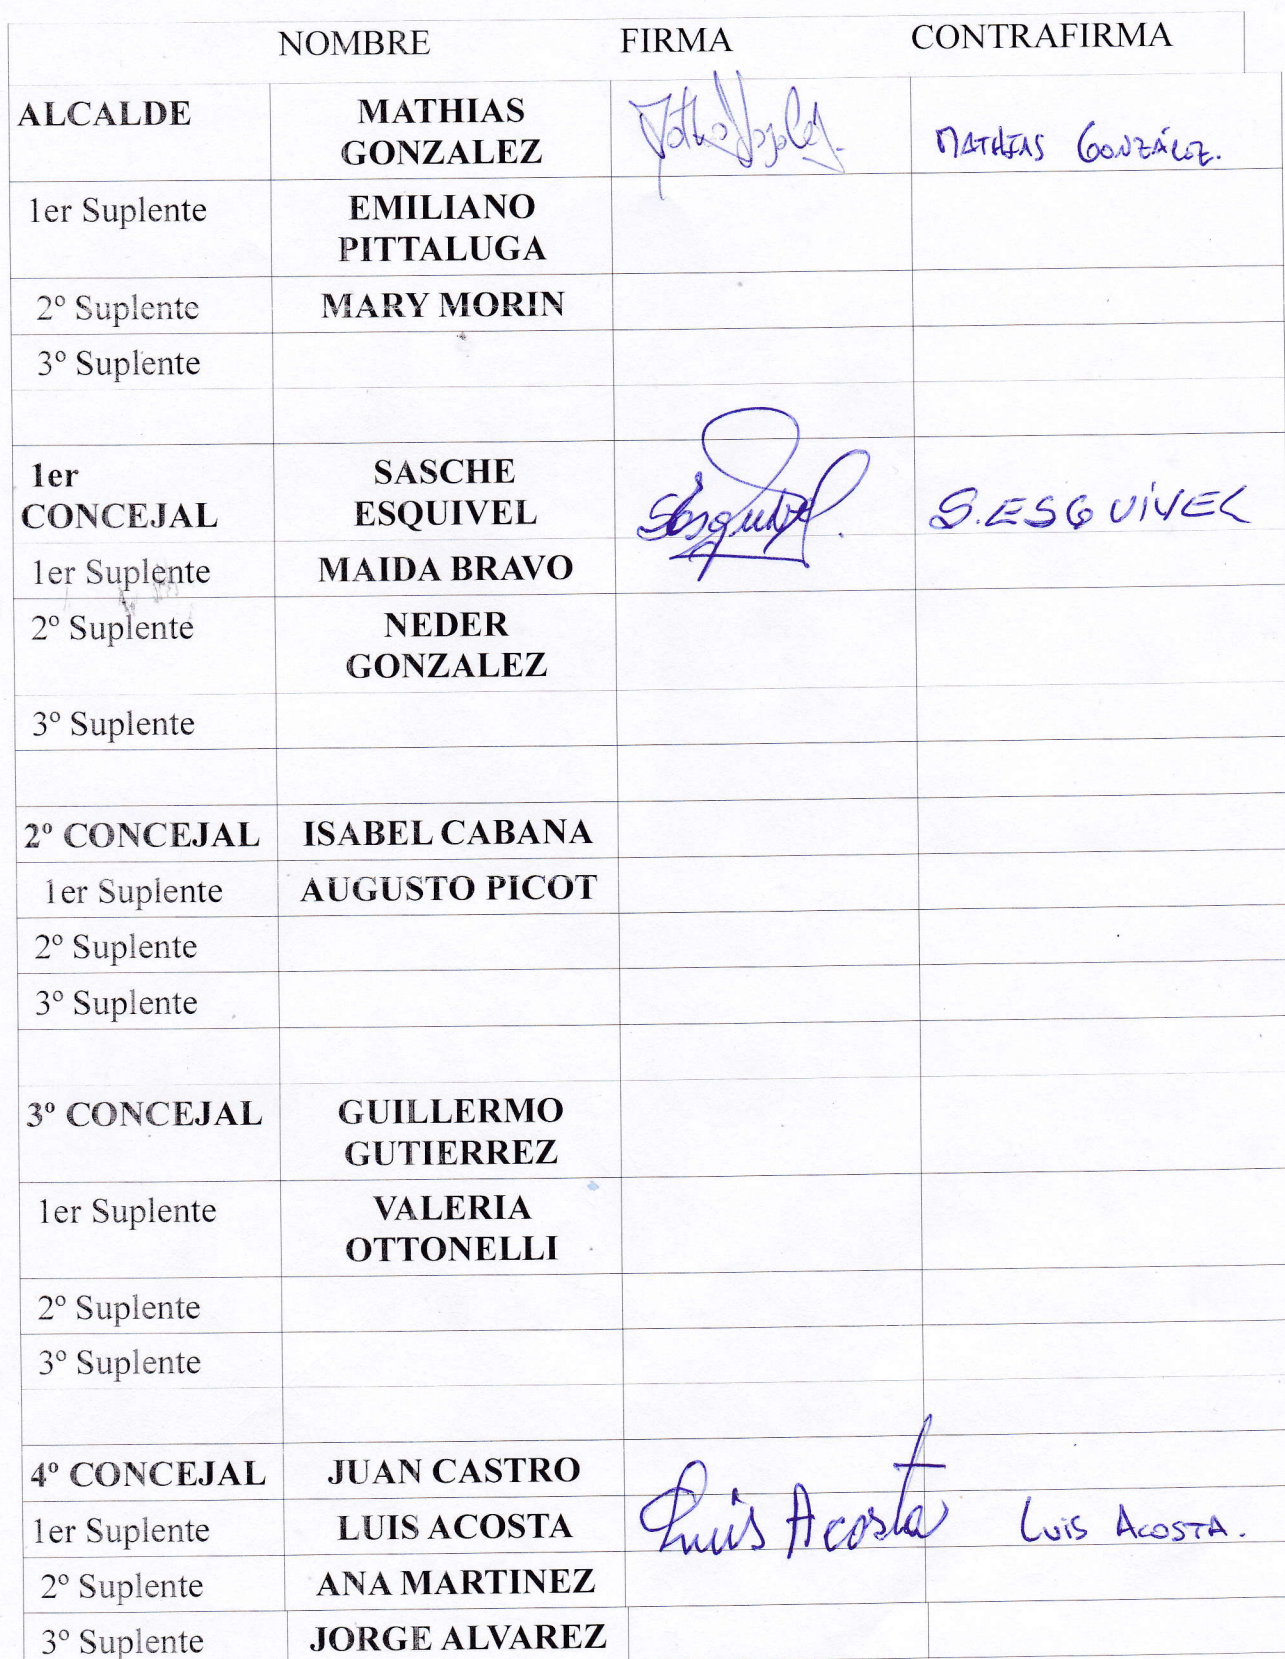 NOMBRE FIRMA CONTRAFIRMA
ALCALDE MATHIAS GONZALEZ MATHIAS GONZÁLEZ.
1er Suplente EMILIANO PITTALUGA
2º Suplente MARY MORIN
3º Suplente
1er CONCEJAL SASCHE ESQUIVEL SEsquivel. S. ESQUIVEL
1er Suplente MAIDA BRAVO
2º Suplente NEDER GONZALEZ
3º Suplente
2º CONCEJAL ISABEL CABANA
1er Suplente AUGUSTO PICOT
2º Suplente
3º Suplente
3º CONCEJAL GUILLERMO GUTIERREZ
1er Suplente VALERIA OTTONELLI
2º Suplente
3º Suplente
4º CONCEJAL JUAN CASTRO
1er Suplente LUIS ACOSTA Luis Acosta LUIS ACOSTA.
2º Suplente ANA MARTINEZ
3º Suplente JORGE ALVAREZ